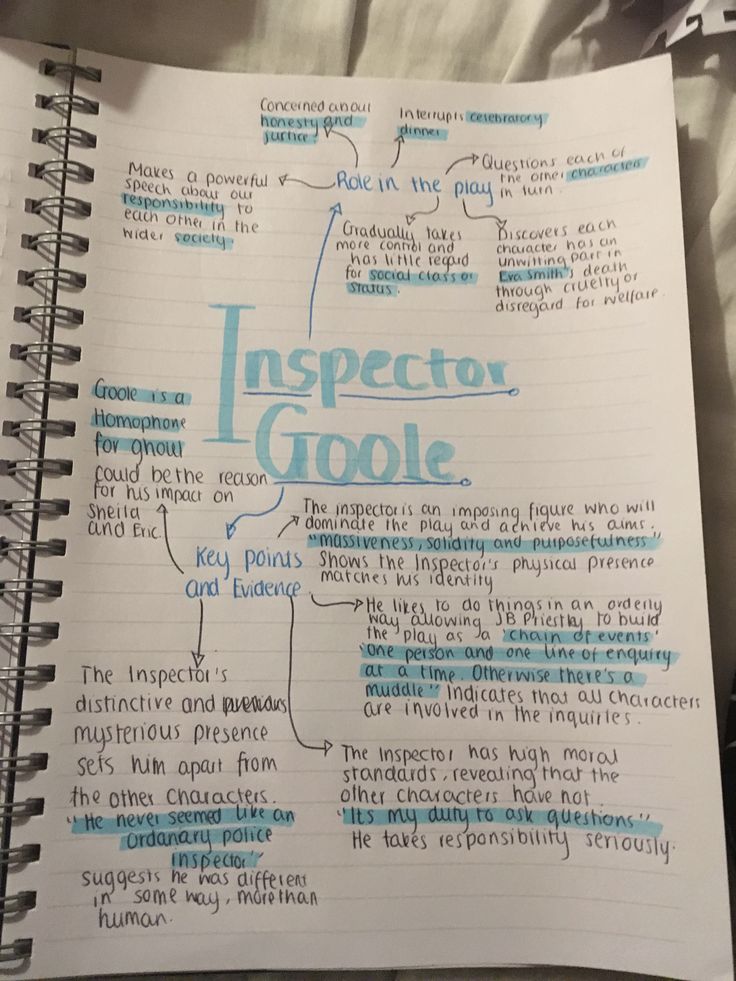 Concerned about
honesty and
justice.
Interrupts celebratory
dinner
Makes a powerful
speech about our
responsibility to
each other in the
wider society.
Role in the play
Questions each of
the other characters
in turn.
Gradually takes
more control and
has little regard
for social class or
status.
Discovers each
character has an
unwitting part in
Eva Smith's death
through cruelty or
disregard for welfare.
Inspector
Goole.
Goole is a
Homophone
for ghoul
could be the reason
for his impact on
Sheila
and Eric.
Key points
and Evidence
The inspector is an imposing figure who will
dominate the play and achieve his aims.
"massiveness, solidity and purposefulness"
Shows the Inspector's physical presence
matches his identity
He likes to do things in an orderly
way allowing JB Priestley to build
the play as a 'chain of events'
'one person and one line of enquiry
at a time. Otherwise there's a
muddle" Indicates that all characters
are involved in the inquiries.
The Inspector's
distinctive and
mysterious presence
sets him apart from
the other characters.
"He never seemed like an
ordanary police
inspector"
suggests he was different
in some way, more than
human.
The Inspector has high moral
standards, revealing that the
other characters have not.
"Its my duty to ask questions"
He takes responsibility seriously.